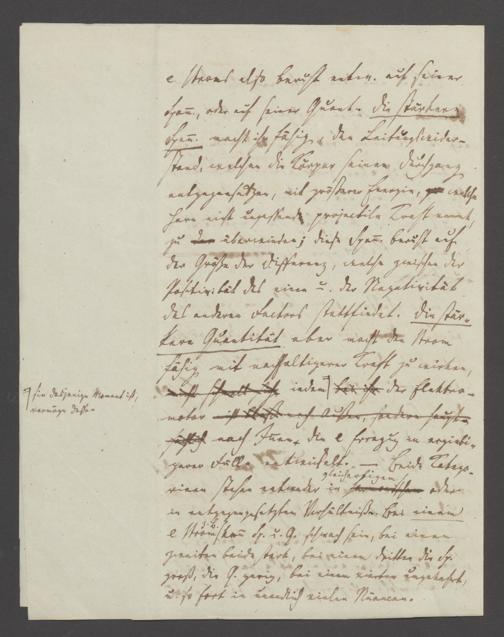 e Stroms also beruht entw. auf seiner
Span̄., oder auf seiner Quant. die stärkere
Span̄. macht ihn fähig, den Leitungswider-
stand, welchen die Körper seinem Durchgang
entgegensetzen, mit größerer Energie, welche
Herr nicht unpassend projectile Kraft nennt,
zu überwinden; diese Span̄. beruht auf
der Größe der Differenz, welche zwischen der
Positivität des einen u. der Negativität
des anderen Factors stattfindet. die stär-
kere Quantität aber macht den Strom
fähig mit nachhaltigerer Kraft zu wirken,
indem der Elektro-
motor
nach Innen, den e in ergiebi-
gerer Fülle entwickelt. — Beide Katego-
gleichartigen
rieen stehen entweder in oder
in entgegengesetztem Verhältniße. Bei einem
z.B.
e Strom kann Sp. u. Q. schwach sein, bei einem
zweiten beide stark, bei einem dritten die Sp.
groß, die Q. gering, bei einem vierten umgekehrt,
u. so fort in unendlich vielen Nüancen.
sein dasjenige Moment ist,
vermöge dessen